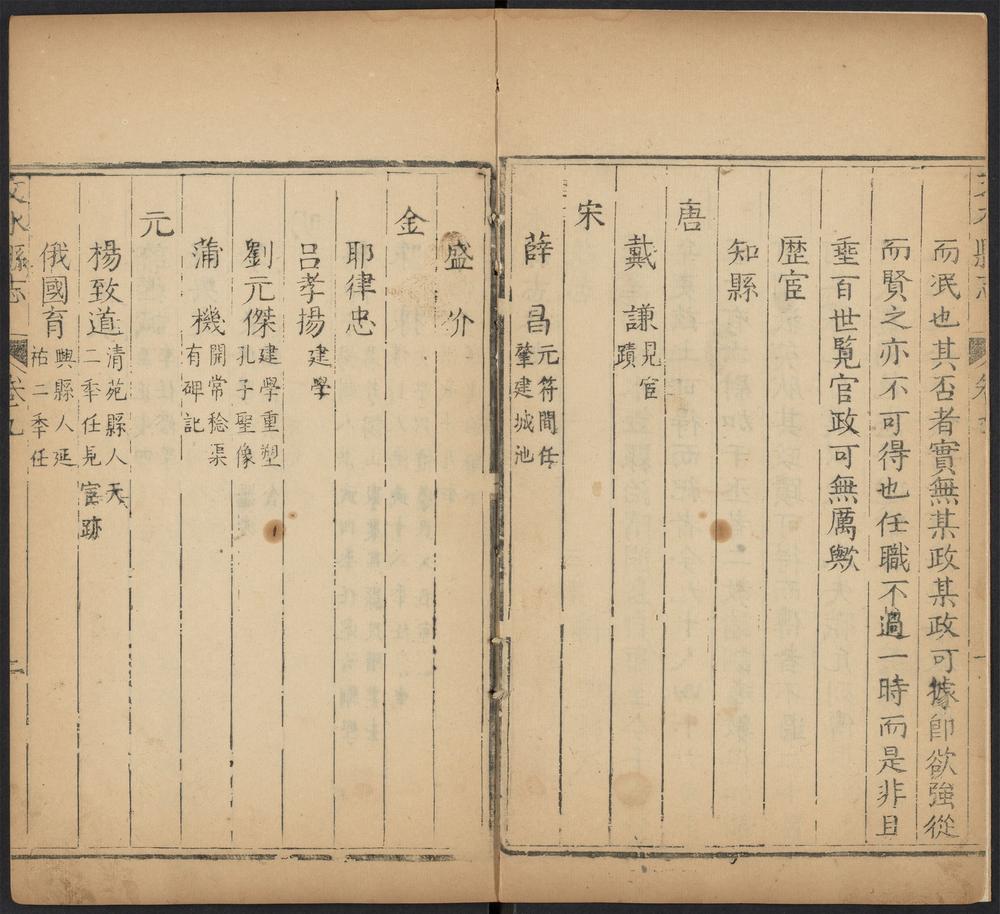 而泯也其否者實無某政某政可據卽欲強從
而賢之亦不可得也任職不過一時而是非且
垂百世覧官政可無厲歟
歴官
知縣
唐
戴謙見宦蹟
宋
薛昌元符間任肇建城池
盛介
金
耶律忠
呂孝揚建學
劉元傑建學重塑孔子聖像
蒲機開常稔渠有碑記
元
楊致道清苑縣人天二秊任見宦跡
俄國育興縣人延祐二秊任
文水縣志 卷九 二